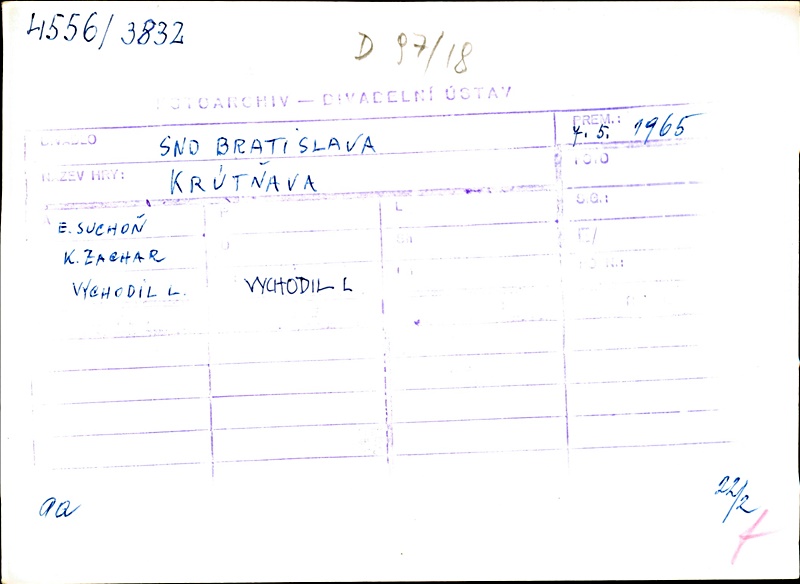 4556/3832
D 97/18
FOTOARCHIV — DIVADELNÍ ÚSTAV
DIVADLO SND BRATISLAVA
PREM.: 7. 5. 1965
NÁZEV HRY: KRÚTŇAVA
E. SUCHOŇ
K. ZACHAR
VYCHODIL L. VYCHODIL L
aa
22/2